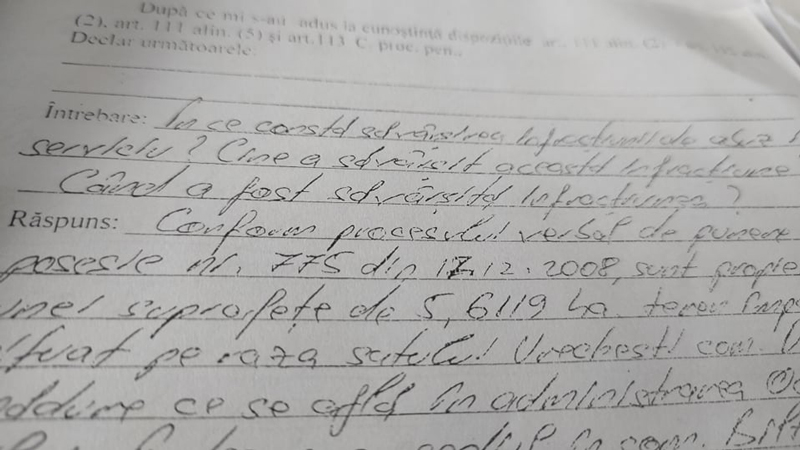 După ce mi s-au adus la cunoștință dispozițiile
(2), art. 111 alin. (5) și art.113 C. proc. pen.,
Declar următoarele:
Întrebare: În ce constă săvârșirea infracțiunii de abuz în
serviciu? Cine a săvârșit această infracțiune
Când a fost săvârșită infracțiunea?
Răspuns: Conform procesului verbal de punere
posesie nr. 775 din 17.12.2008, sunt proprie
unei suprafețe de 5,6119 ha. teren împ
situat pe raza satului Urechești com.
pădure ce se află în administrarea
în com.